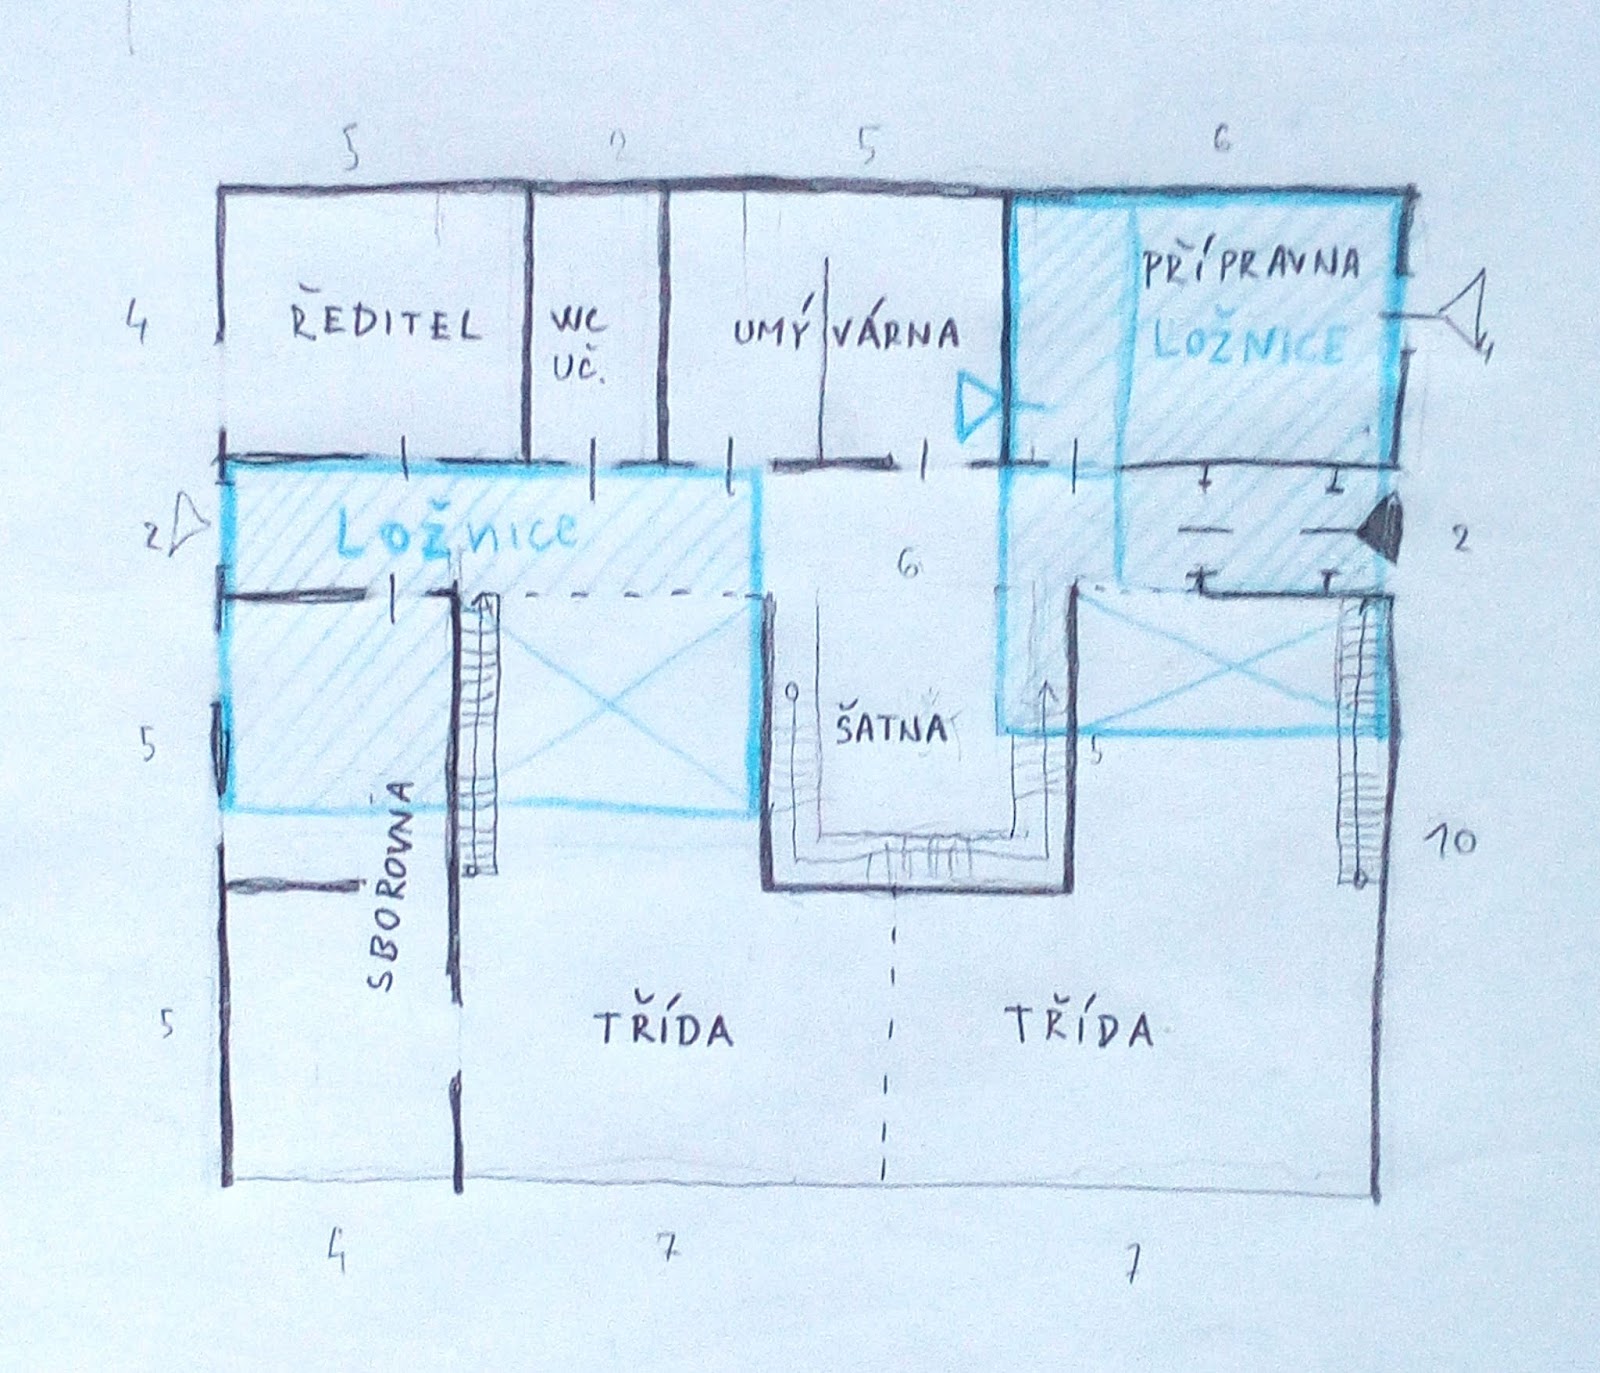 5 2 5 6
4
PŘÍPRAVNA
ŘEDITEL
WC
UČ.
UMÝVÁRNA
LOŽNICE
2
LOŽNICE
6
2
5
ŠATNA
5
SBOROVNA
10
5
TŘÍDA
TŘÍDA
4 7 7